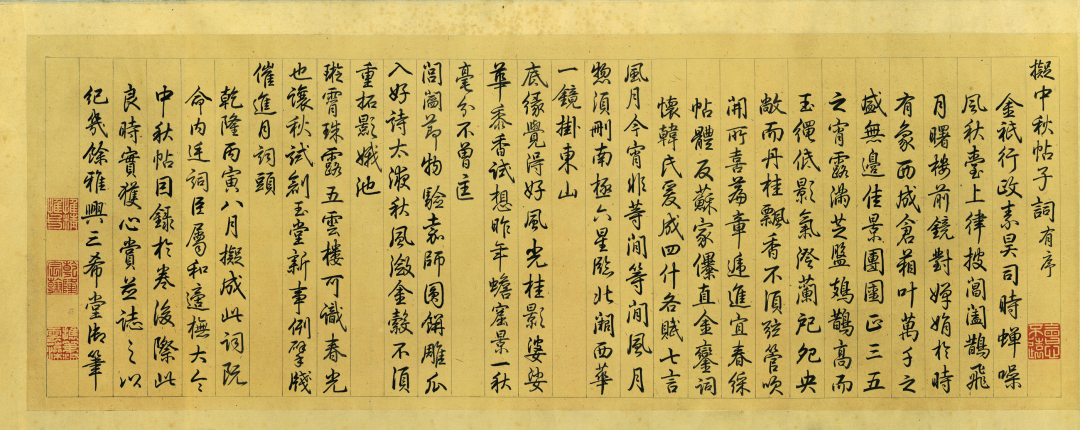 擬中秋帖子詞有序
金祇行政素昊司時蟬噪
風秋臺上律披閶闔鵲飛
月曙樓前鏡對嬋娟於時
有象西成倉箱叶萬千之
盛無邊佳景團圞正三五
之宵露滿芝盤鳷鵲高而
玉繩低影氣澄蘭戺兒央
敞而丹桂飄香不須弦管吹
開所喜篇章遞進宜春綵
帖體反蘇家儤直金鑾詞
懷韓氏爰成四什各賦七言
風月今宵非等閒等閒風月
惣須刪南極六星臨北湖西華
一鏡掛東山
底緣覺得好風光桂影婆娑
華黍香試想昨年蟾窟景一秋
毫分不曾[匡]
閶闔節物驗嘉師圓餅雕瓜
入好詩太液秋風澂金縠不須
重拓影娥池
璇霄珠露五雲樓可識春光
也讓秋試剏玉堂新事例擘牋
催進月詞頭
乾隆丙寅八月擬成此詞既
命內廷詞臣屬和邃橅大令
中秋帖目錄於卷後際此
良時實獲心賞並誌之以
紀幾餘雅興三希堂御筆